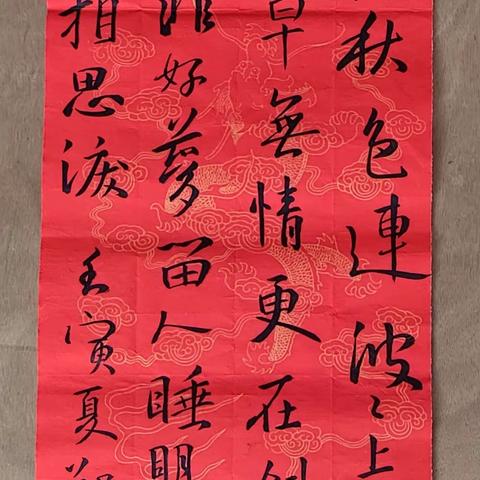 秋色連波〻上
草無情更在斜
非好夢留人睡明
相思淚 壬寅夏